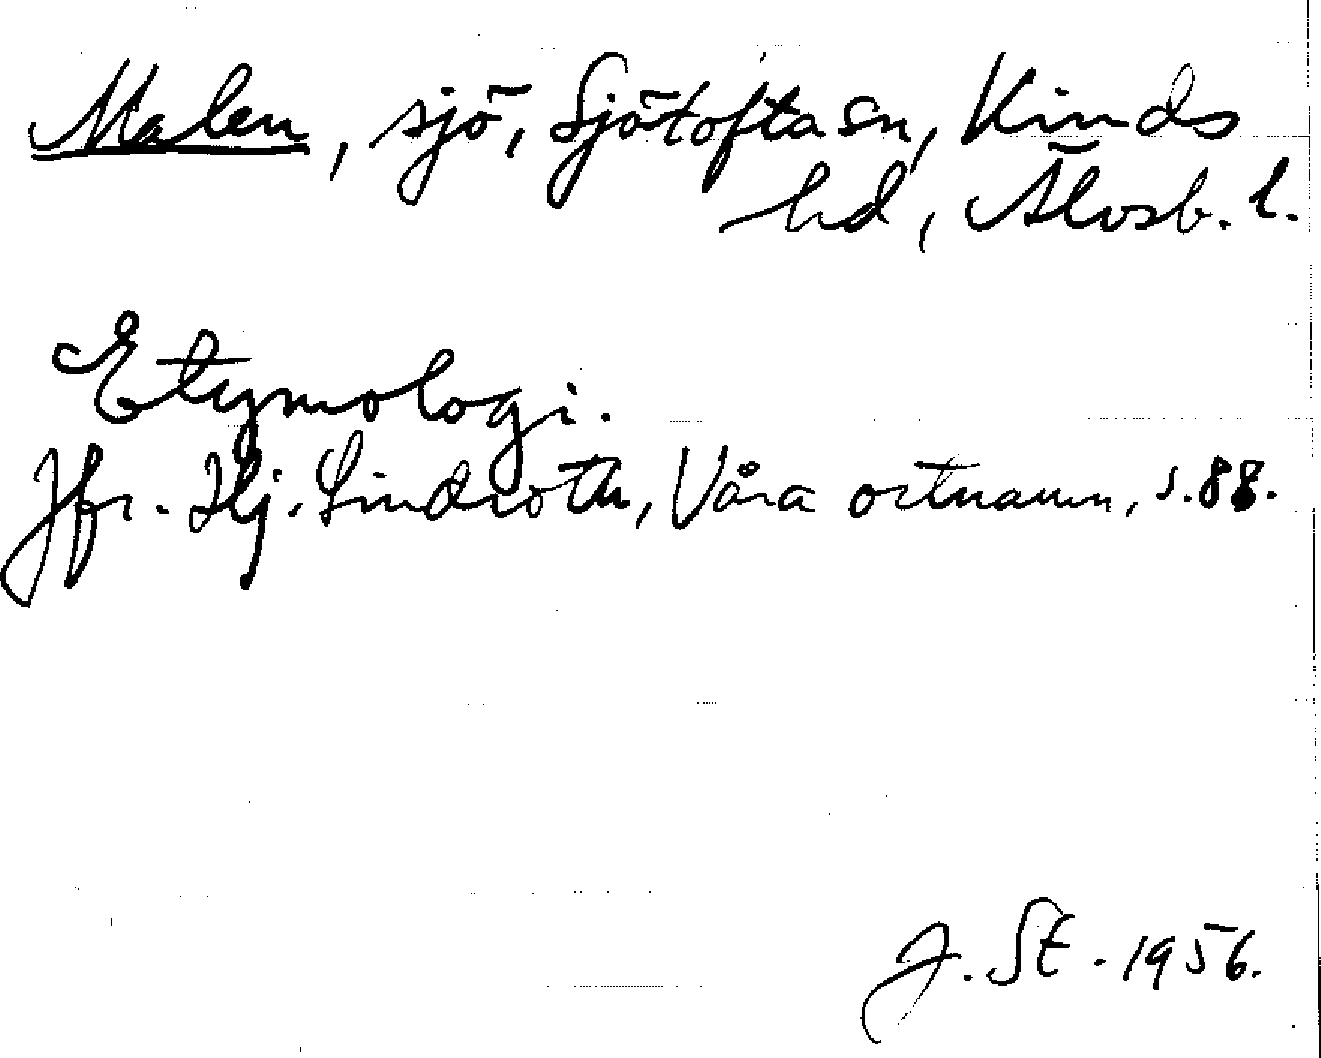 Malen, sjö, Sjötofta sn, Kinds
hd, Älvsb. l.
Etymologi.
Jfr. Hj. Lindroth, Våra ortnamn, s. 88.
J. St. 1956.